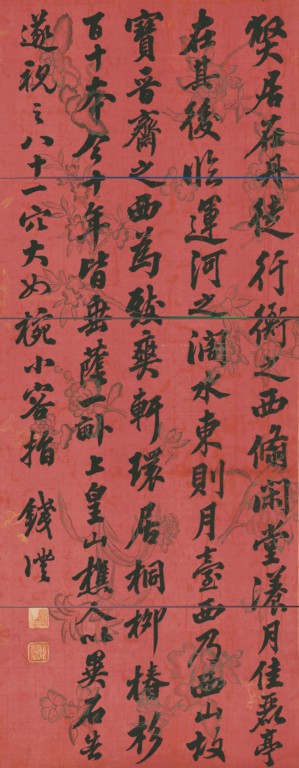 僰居在丹徒行衙之西脩閑堂漾月佳麗亭
在其後臨運河之濶水東則月臺西乃西山故
寶晉齋之西為致爽軒環居桐柳椿杉
百十本今十年皆垂蔭一畝上皇山樵人以異石告
遂視之八十一穴大如碗小容指 錢灃